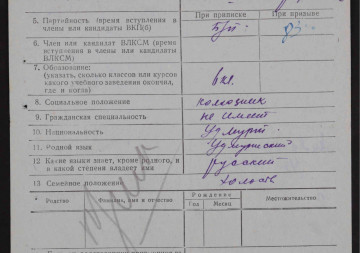 При приписке
При призыве
5. Партийность (время вступления в
члены или кандидаты ВКП(б)
б/п
6. Член или кандидат ВЛКСМ (время
вступления в члены или кандидаты
ВЛКСМ)
7. Образование:
(указать, сколько классов или курсов
какого учебного заведения окончил,
где и когда)
8. Социальное положение
колхозник
9. Гражданская специальность
не имеет
10. Национальность
Удмурт
11. Родной язык
Удмуртский
12. Какие языки знает, кроме родного, и
в какой степени владеет ими
русский
13 Семейное положение
холост
№ Родство Фамилия, имя и отчество Рождение Местожительство
Год Месяц